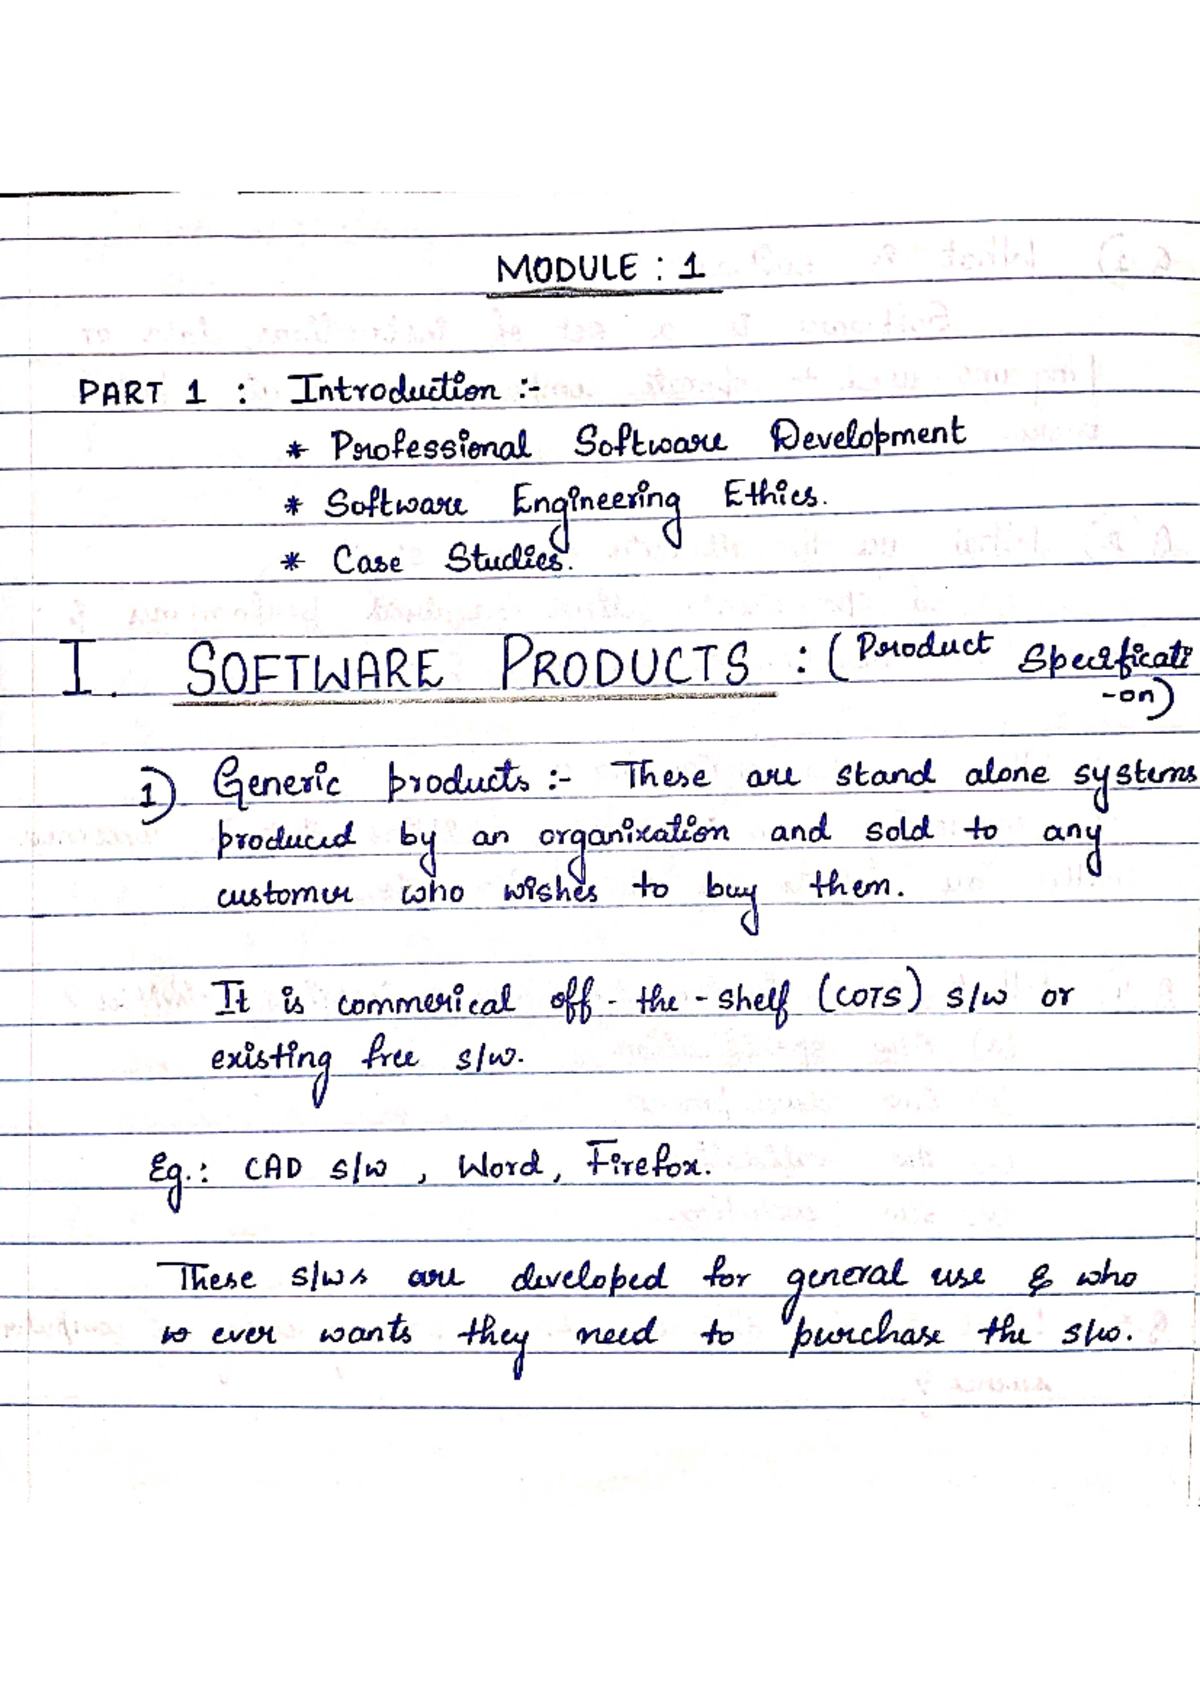 MODULE : 1
PART 1 : Introduction :-
* Professional Software Development
* Software Engineering Ethics.
* Case Studies.
I. SOFTWARE PRODUCTS : (Product Specificati
-on)
1) Generic products :- These are stand alone systems
produced by an organization and sold to any
customer who wishes to buy them.
It is commerical off - the - shelf (COTS) s/w or
existing free s/w.
Eg.: CAD s/w , Word, Firefox.
These s/ws are developed for general use & who
so ever wants they need to purchase the s/w.